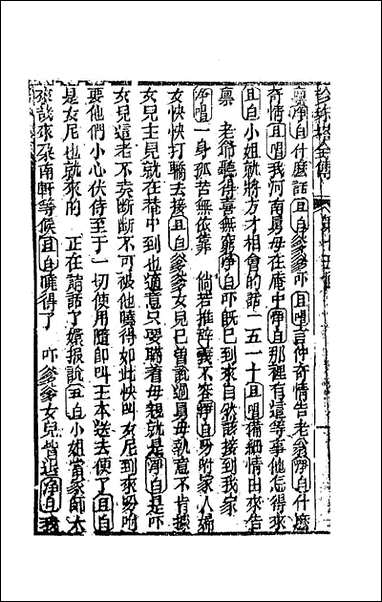 珍珠塔全傳
稟淨白什麽話旦白爹爹吓旦唱言伸奇情告老爹淨白什麽
奇情旦唱我河南舅母在庵中淨白那裡有這等事他怎得來
旦白小姐就將方才相會的話一五一十旦唱備細情由來告
稟 老爺聽得喜無窮淨白吓既已到來自然該接到我家
淨唱一身孤苦無依靠 倘若推辞義不容淨白分咐家人婦
女快快打轎去接旦白爹爹女兒已曾說過舅母執意不肯據
女兒主見就在菴中到也適意只要瞞着母親就是淨白是吓
女兒這老不賢断断不可被他曉得如此快叫女尼到來分咐
要他們小心伏侍至于一切使用隨即叫王本送去便了旦白
是女尼也就來的 正在講話丫嬛報說丑白小姐當家師太
來哉來哉南軒等候旦白曉得了 吓爹爹女兒暫退淨白我